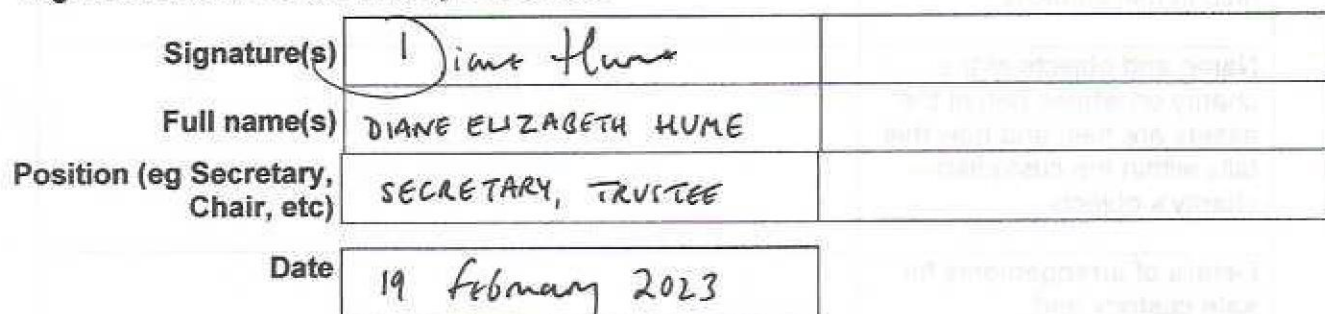 Signature(s) Diane Hume
Full name(s) DIANE ELIZABETH HUME
Position (eg Secretary, Chair, etc) SECRETARY, TRUSTEE
Date 19 February 2023